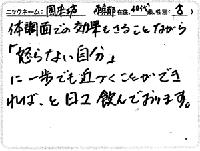 ニックネーム: 京都在住、40代(性別:女)
体調面での効果もさることながら
「怒らない自分」
に一歩でも近づくことができ
れば、と日々飲んでおります。